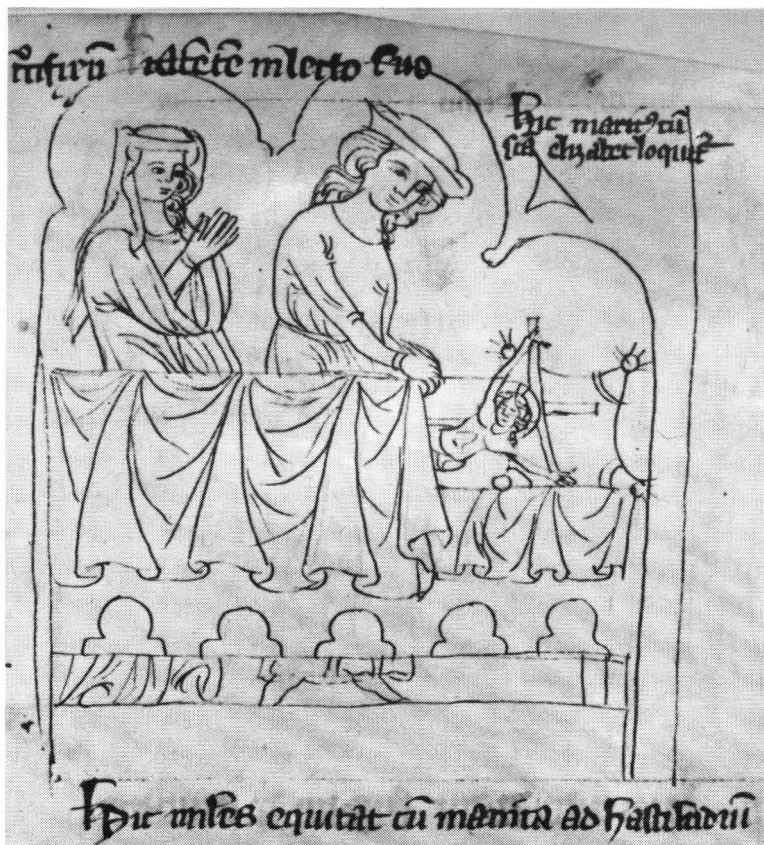 c̄ifixū iacētē in lecto suo
Hic maritꝰ cū
scā elyzabet loquit᷑
Hic miles equitat cū ad hastiludiū